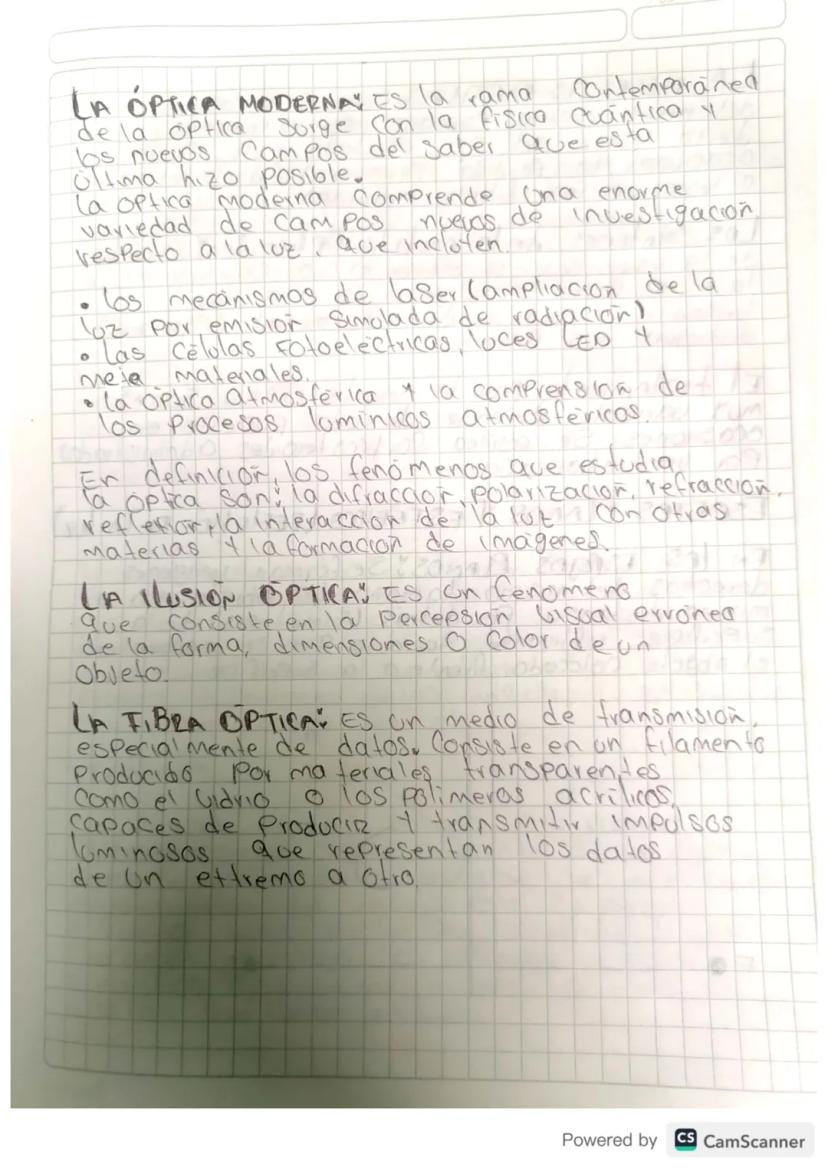 LA ÓPTICA MODERNA: ES la rama contemporánea
de la óptica surge con la física cuántica y
los nuevos campos del saber que esta
última hizo posible.
la optica moderna comprende una enorme
variedad de campos nuevos de investigación
respecto a la luz, que incluyen.
• los mecánismos de laser (ampliación de la
luz por emisión simulada de radiación)
• las células fotoeléctricas, luces LED y
meta materiales.
• la óptica atmosférica y la comprensión de
los procesos lumínicos atmosféricos.
En definición, los fenómenos que estudia
la óptica son: la difracción, polarización, refracción,
reflexion, la interacción de la luz con otras
materias y la formación de imágenes.
LA ILUSIÓN ÓPTICA: ES un fenomeno
que consiste en la percepsión visual erronea
de la forma, dimensiones o color de un
objeto.
LA FIBRA ÓPTICA: ES un medio de transmisión,
especialmente de datos. Consiste en un filamento
producido por materiales transparentes
como el vidrio o los polimeros acrílicos,
capaces de producir y transmitir impulsos
luminosos que representan los datos
de un extremo a otro
Powered by CS CamScanner